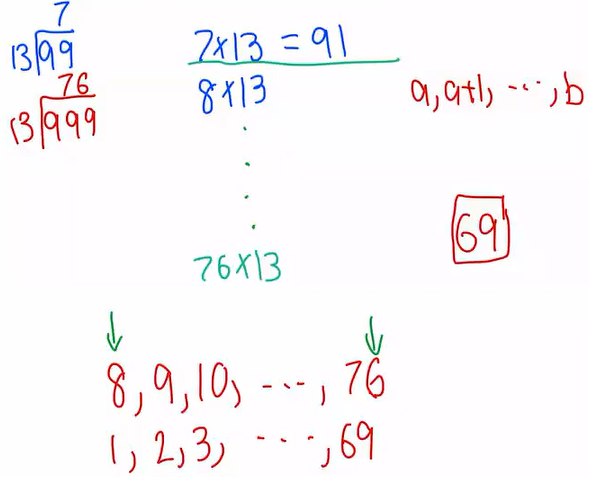 7
13)99
76
13)999
7×13 = 91
8×13
.
.
.
.
76×13
a, a+1, ..., b
69
8, 9, 10, ..., 76
1, 2, 3, ..., 69